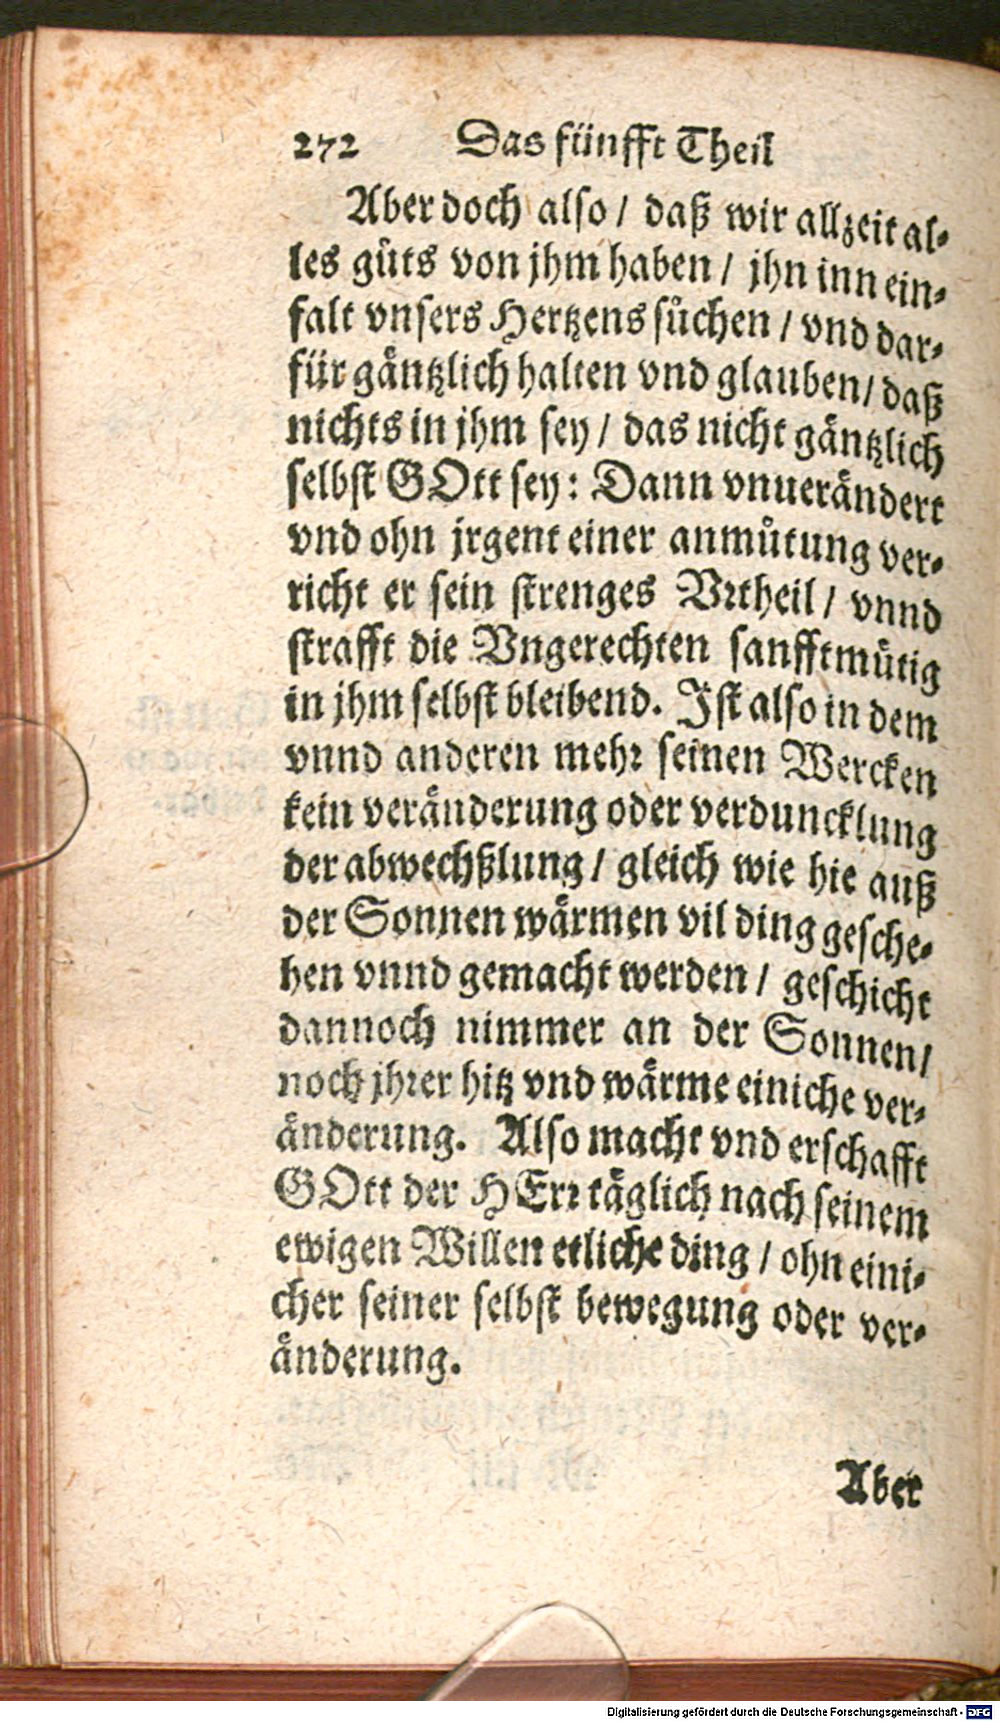 272 Das fünfft Theil
Aber doch also / daß wir allzeit al-
les güts von jhm haben / jhn inn ein-
falt vnsers Hertzens sůchen / vnd dar-
für gäntzlich halten vnd glauben / daß
nichts in jhm sey / das nicht gäntzlich
selbst GOtt sey: Dann vnuerändert
vnd ohn jrgent einer anmůtung ver-
richt er sein strenges Vrtheil / vnnd
strafft die Vngerechten sanfftmütig
in jhm selbst bleibend. Ist also in dem
vnnd anderen mehr seinen Wercken
kein veränderung oder verduncklung
der abwechßlung / gleich wie hie auß
der Sonnen wärmen vil ding gesche-
hen vnnd gemacht werden / geschicht
dannoch nimmer an der Sonnen /
noch jhrer hitz vnd wärme einiche ver-
änderung. Also macht vnd erschafft
GOtt der HErr täglich nach seinem
ewigen Willen etliche ding / ohn eini-
cher seiner selbst bewegung oder ver-
änderung.
Aber
Digitalisierung gefördert durch die Deutsche Forschungsgemeinschaft - DFG